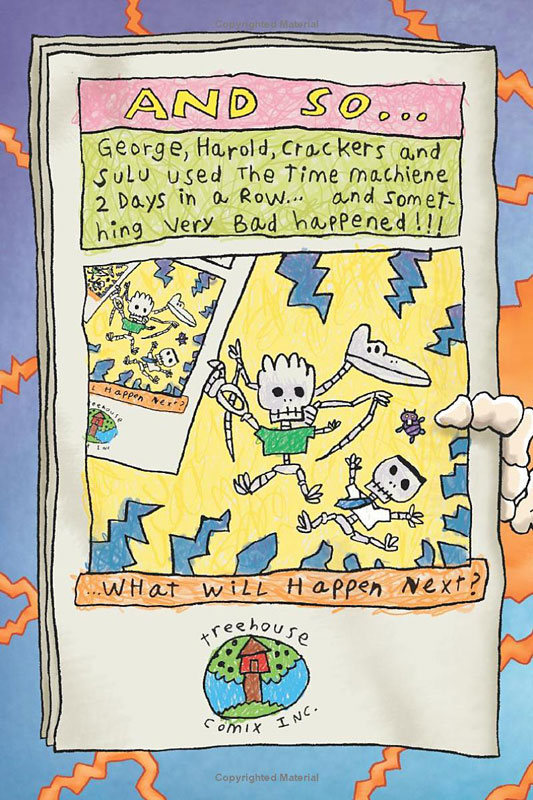 Copyrighted Material
AND SO...
George, Harold, Crackers and
Sulu used The Time machiene
2 Days in a Row... and somet-
hing very Bad happened!!!
Happen Next?
...What will Happen Next?
treehouse
comix Inc.
Copyrighted Material